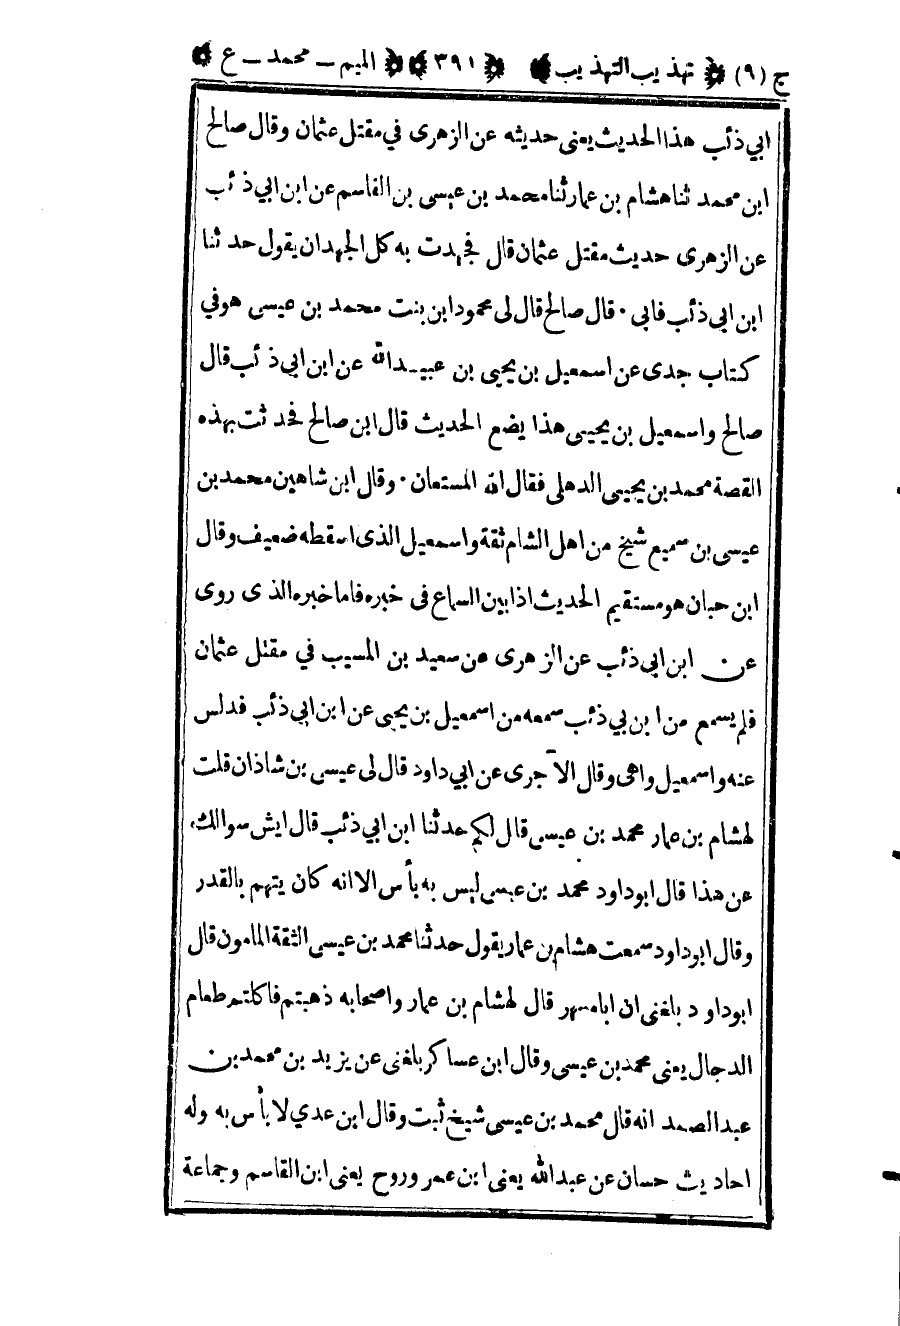 ج (٩) تهذيب التهذيب ٣٩١ الميم ـ محمد ـ ع
ابي ذئب هذا الحديث يعنى حديثه عن الزهرى في مقتل عثمان وقال صالح
ابن محمد ثنا هشام بن عمار ثنا محمد بن عيسى بن القاسم عن ابن ابي ذئب
عن الزهرى حديث مقتل عثمان قال فجهدت به كل الجهد ان يقول حدثنا
ابن ابي ذئب فابى · قال صالح قال لى محمود ابن بنت محمد بن عيسى هو في
كتاب جدى عن اسمعيل بن يحيى بن عبيدالله عن ابن ابي ذئب قال
صالح واسمعيل بن يحيى هذا يضع الحديث قال ابن صالح فحدثت بهذه
القصة محمد بن يحيى الدهلى فقال الله المستعان · وقال ابن شاهين محمد بن
عيسى بن سميع شيخ من اهل الشام ثقة واسمعيل الذى اسقطه ضعيف وقال
ابن حبان هو مستقيم الحديث اذا بين السماع فى خبره فاما خبره الذى روى
عن ابن ابي ذئب عن الزهرى عن سعيد بن المسيب في مقتل عثمان
فلم يسمع من ابن بي ذئب سمعه من اسمعيل بن يحيى عن ابن ابي ذئب فدلس
عنه واسمعيل واهى وقال الآجرى عن ابي داود قال لى عيسى بن شاذان قلت
لهشام بن عمار محمد بن عيسى قال لكم حدثنا ابن ابي ذئب قال ايش سوالك
عن هذا قال ابوداود محمد بن عيسى ليس به بأس الا انه كان يتهم بالقدر
وقال ابوداود سمعت هشام بن عمار يقول حدثنا محمد بن عيسى الثقة المامون قال
ابوداود بلغنى ان ابا مسهر قال لهشام بن عمار واصحابه ذهبتم فاكلتم طعام
الدجال يعنى محمد بن عيسى وقال ابن عساكر بلغنى عن يزيد بن محمد بن
عبدالصمد انه قال محمد بن عيسى شيخ ثبت وقال ابن عدي لا بأس به وله
احاديث حسان عن عبدالله يعنى ابن عمر وروح يعنى ابن القاسم وجماعة